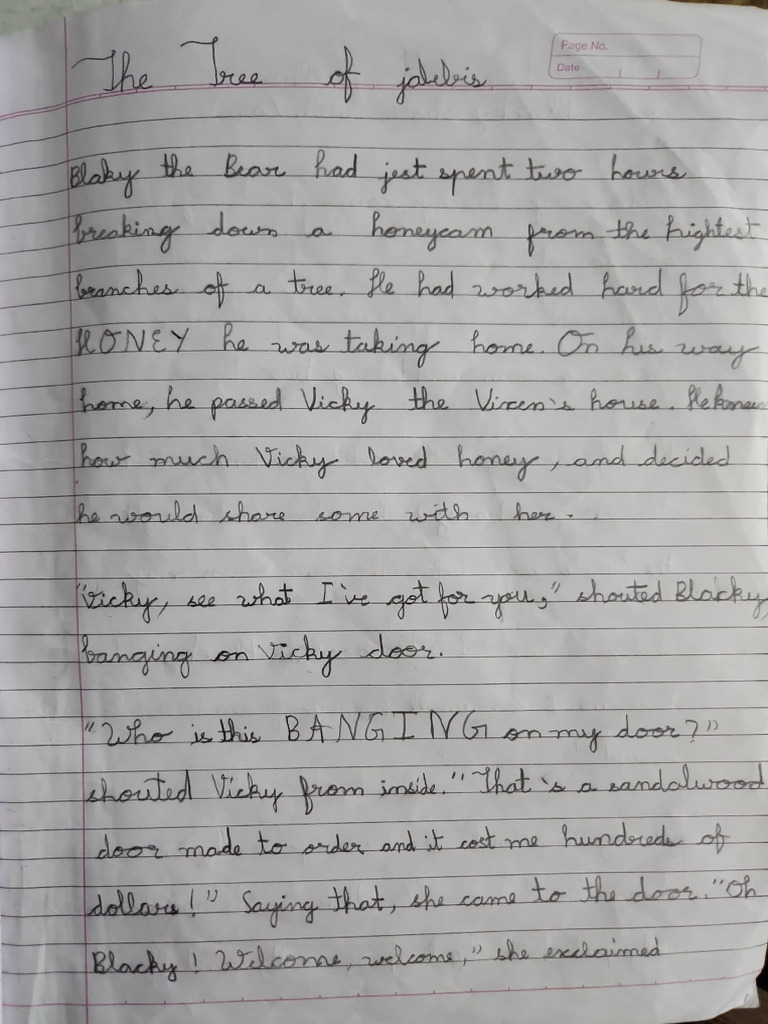 Page No.
Date
The Tree of jalebis
Blaky the Bear had jest spent two hours
breaking down a honeycam from the hightest
branches of a tree. He had worked hard for the
HONEY he was taking home. On his way
home, he passed Vicky the Vixen's house. He knew
how much Vicky loved honey, and decided
he would share some with her.
"Vicky, see what I've got for you," shouted Blacky,
banging on Vicky door.
"Who is this BANGING on my door?"
shouted Vicky from inside. "That's a sandalwood
door made to order and it cost me hundreds of
dollars!" Saying that, she came to the door. "Oh
Blacky! Welcome, welcome," she exclaimed